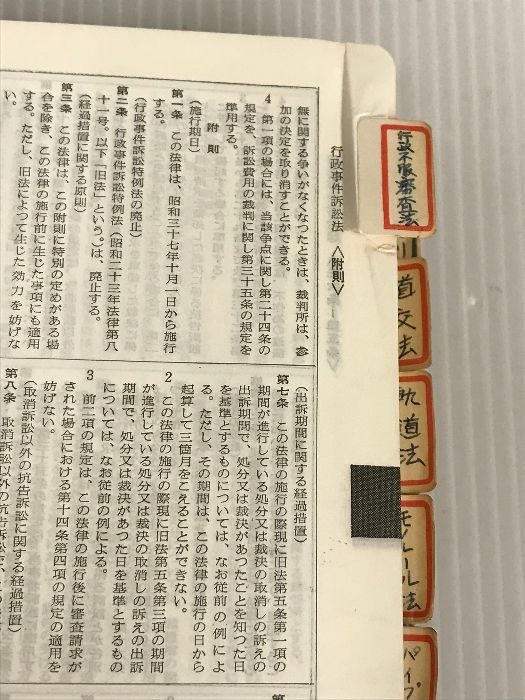 行政事件訴訟法 〈附則〉
無に関する争いがなくなつたときは、裁判所は、参
加の決定を取り消すことができる。
4 第一項の場合には、当該争点に関し第二十四条の
規定を、訴訟費用の裁判に関し第三十五条の規定を
準用する。
附 則
(施行期日)
第一条 この法律は、昭和三十七年十月一日から施行
する。
(行政事件訴訟特例法の廃止)
第二条 行政事件訴訟特例法(昭和二十三年法律第八
十一号。以下「旧法」という。)は、廃止する。
(経過措置に関する原則)
第三条 この法律は、この附則に特別の定めがある場
合を除き、この法律の施行前に生じた事項にも適用
する。ただし、旧法によつて生じた効力を妨げな
い。
(出訴期間に関する経過措置)
第七条 この法律の施行の際現に旧法第五条第一項の
期間が進行している処分又は裁決の取消しの訴えの
出訴期間で、処分又は裁決があつたことを知つた日
を基準とするものについては、なお従前の例によ
る。ただし、その期間は、この法律の施行の日から
起算して三箇月をこえることができない。
2 この法律の施行の際現に旧法第五条第三項の期間
が進行している処分又は裁決の取消しの訴えの出訴
期間で、処分又は裁決があつた日を基準とするもの
については、なお従前の例による。
3 前二項の規定は、この法律の施行後に審査請求が
された場合における第十四条第四項の規定の適用を
妨げない。
(取消訴訟以外の抗告訴訟に関する経過措置)
第八条 取消訴訟以外の抗告訴訟で、
行政不服審査法
道交法
軌道法
モノレール法
パイプ